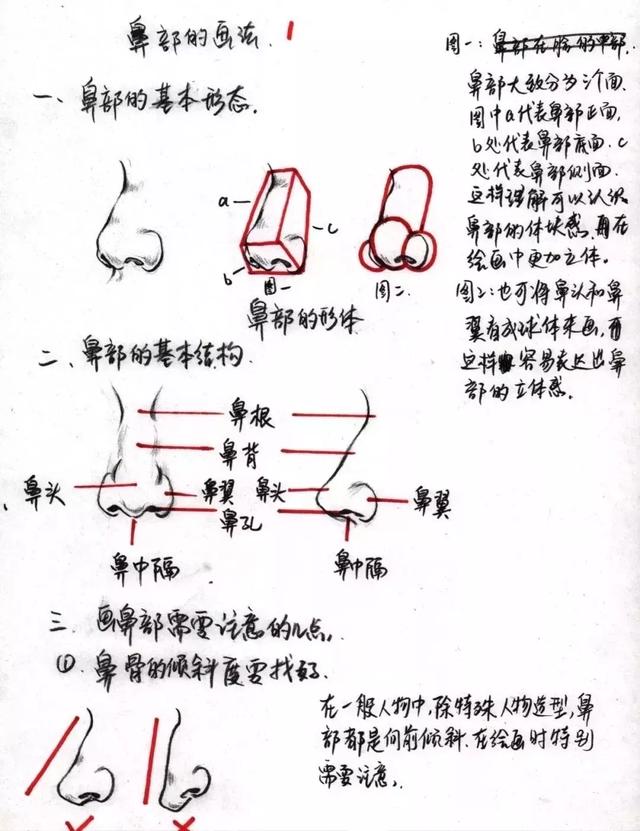 鼻部的画法.
一、鼻部的基本形态.
a
b
c
图一
图二.
鼻部的形体
图一:鼻部在脸的中部.
鼻部大致分为三个面.
图中a代表鼻部正面,
b处代表鼻部底面.c
处代表鼻部侧面.
这样理解可以认识
鼻部的体块感,再在
绘画中更加立体。
图二:也可将鼻头和鼻
翼看成球体来画,而
这样容易表达出鼻
部的立体感.
二、鼻部的基本结构.
鼻根
鼻背
鼻头
鼻翼
鼻头
鼻翼
鼻孔
鼻中隔
鼻中隔
三.画鼻部需要注意的几点,
① 鼻骨的倾斜度要找好.
在一般人物中,除特殊人物造型,鼻
部都是向前倾斜.在绘画时特别
需要注意。